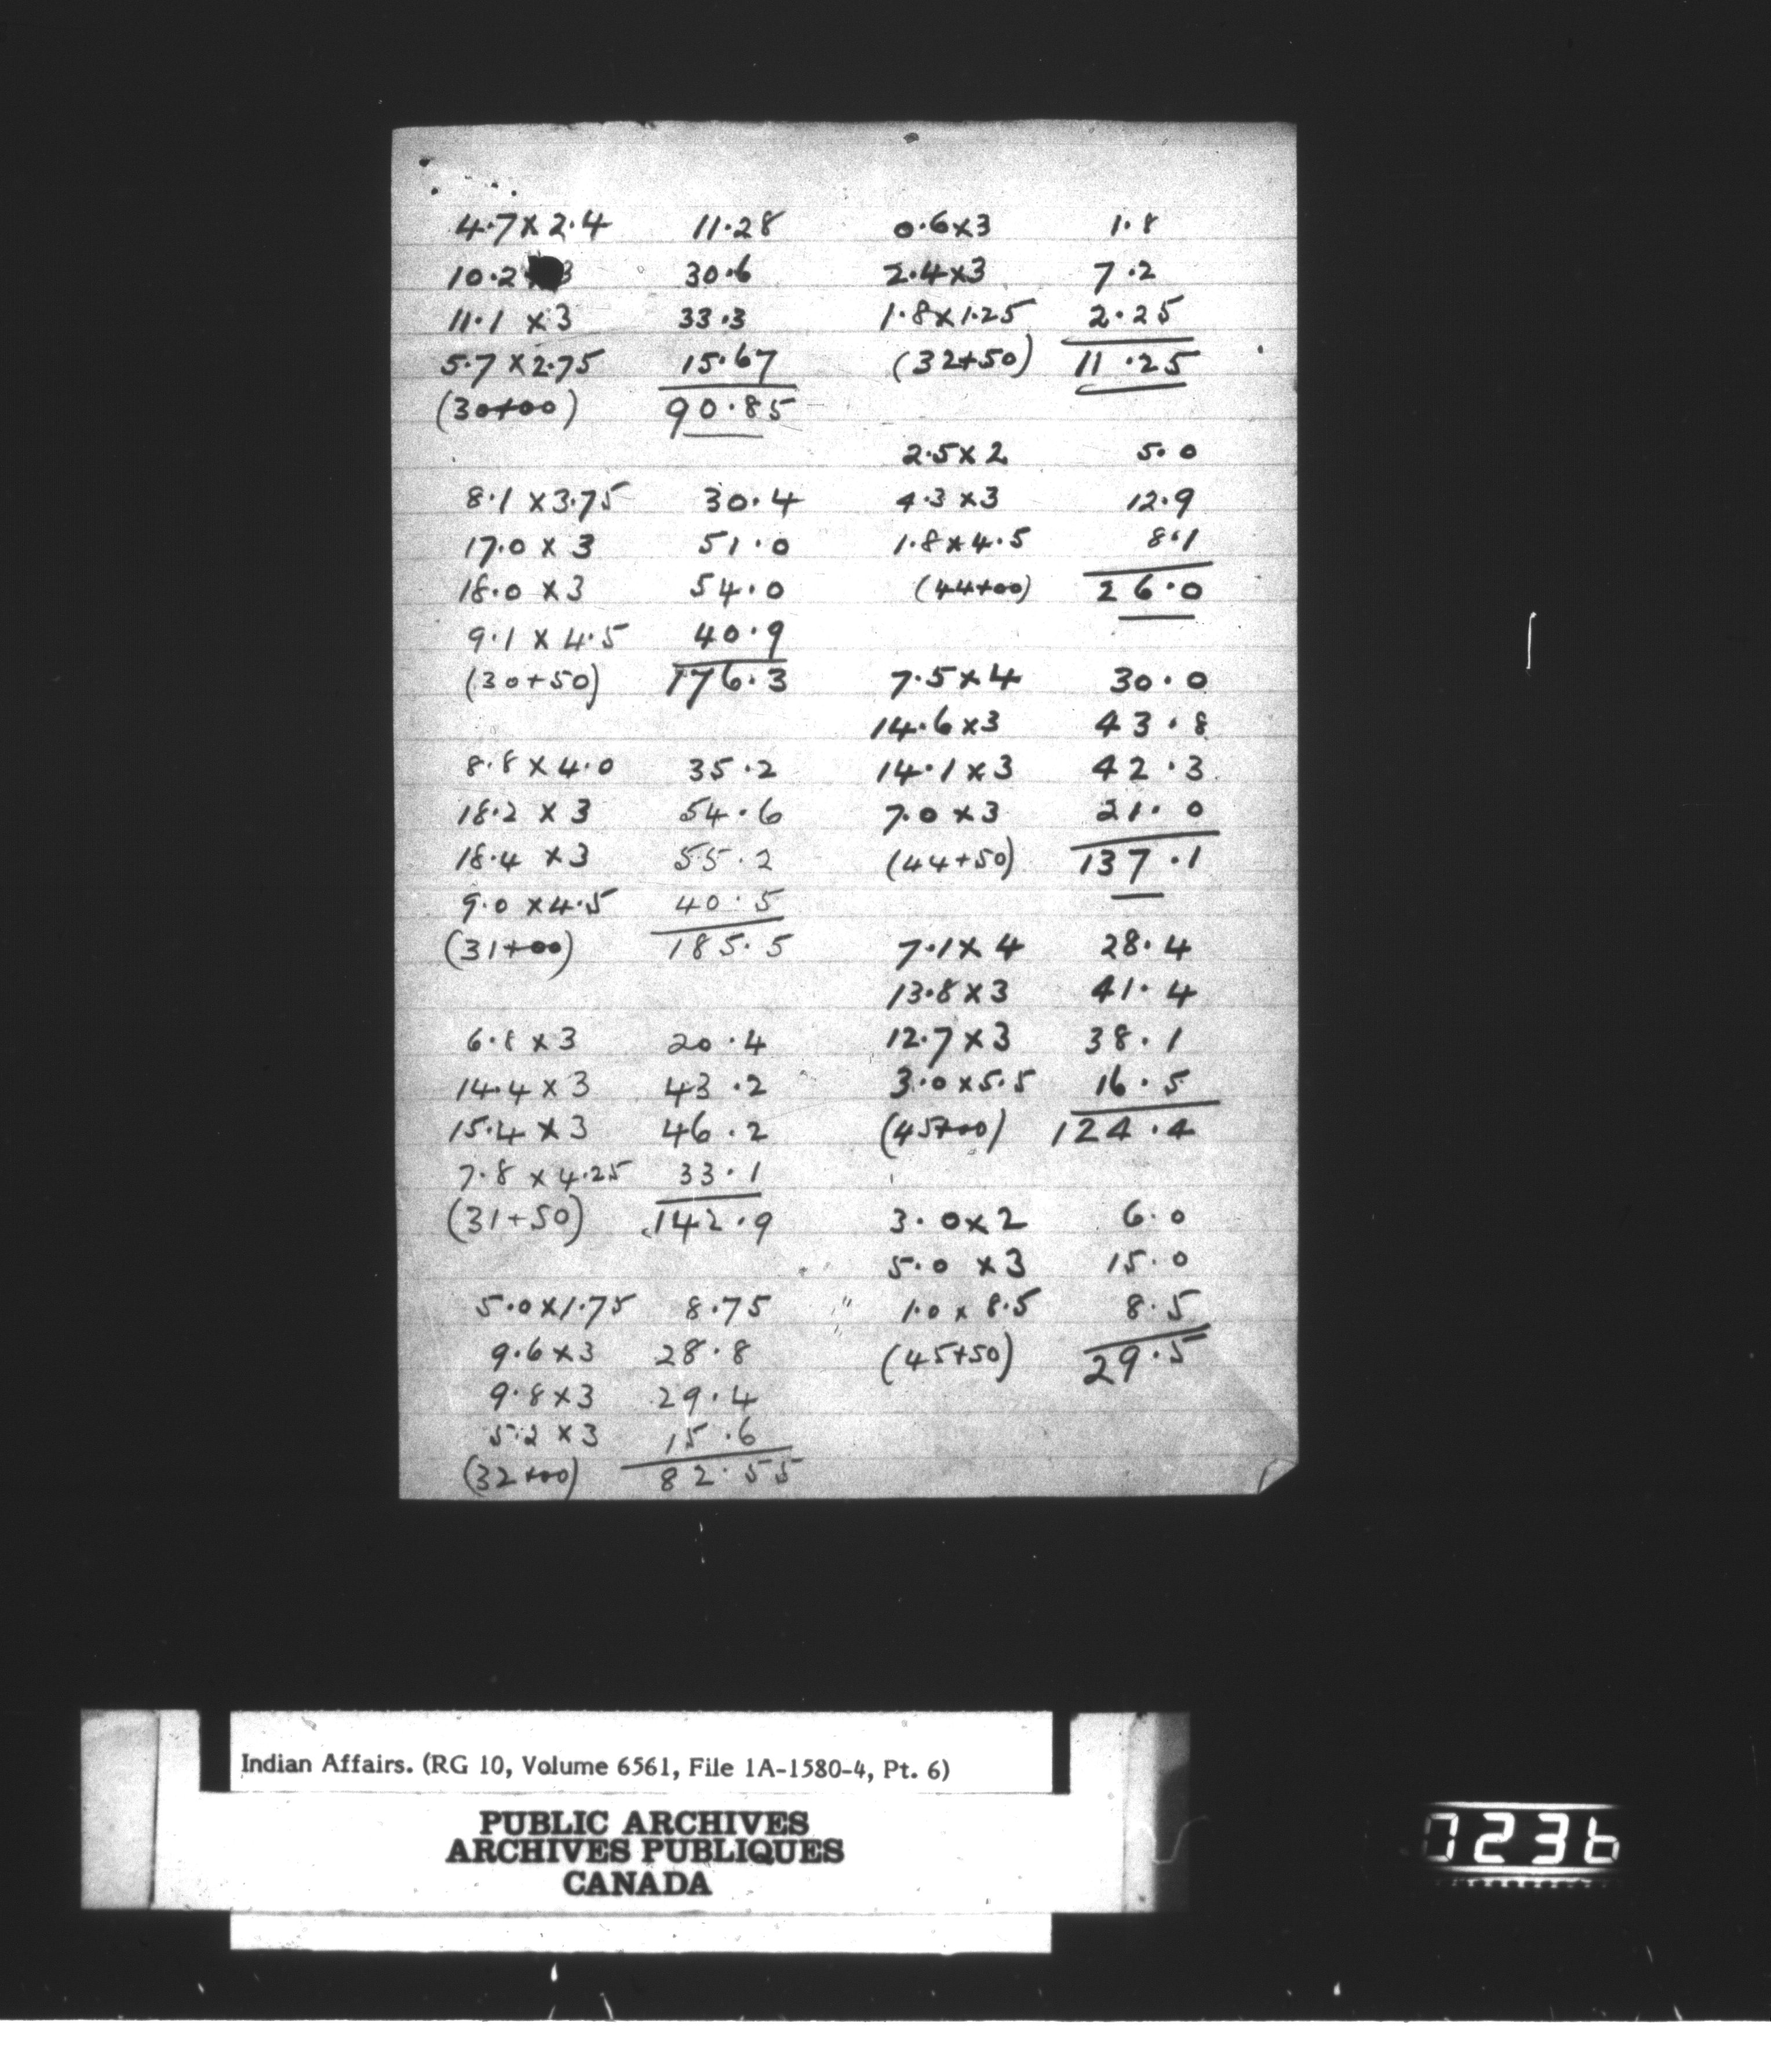 4.7 x 2.4 11.28
10.2 3 30.6
11.1 x 3 33.3
5.7 x 2.75 15.67
(30+00) 90.85
8.1 x 3.75 30.4
17.0 x 3 51.0
18.0 x 3 54.0
9.1 x 4.5 40.9
(30+50) 176.3
8.8 x 4.0 35.2
18.2 x 3 54.6
18.4 x 3 55.2
9.0 x 4.5 40.5
(31+00) 185.5
6.8 x 3 20.4
14.4 x 3 43.2
15.4 x 3 46.2
7.8 x 4.25 33.1
(31+50) 142.9
5.0 x 1.75 8.75
9.6 x 3 28.8
9.8 x 3 29.4
5.2 x 3 15.6
(32+00) 82.55
0.6 x 3 1.8
2.4 x 3 7.2
1.8 x 1.25 2.25
(32+50) 11.25
2.5 x 2 5.0
4.3 x 3 12.9
1.8 x 4.5 8.1
(44+00) 26.0
7.5 x 4 30.0
14.6 x 3 43.8
14.1 x 3 42.3
7.0 x 3 21.0
(44+50) 137.1
7.1 x 4 28.4
13.8 x 3 41.4
12.7 x 3 38.1
3.0 x 5.5 16.5
(45+00) 124.4
3.0 x 2 6.0
5.0 x 3 15.0
1.0 x 8.5 8.5
(45+50) 29.5
Indian Affairs. (RG 10, Volume 6561, File 1A-1580-4, Pt. 6)
PUBLIC ARCHIVES
ARCHIVES PUBLIQUES
CANADA
0236